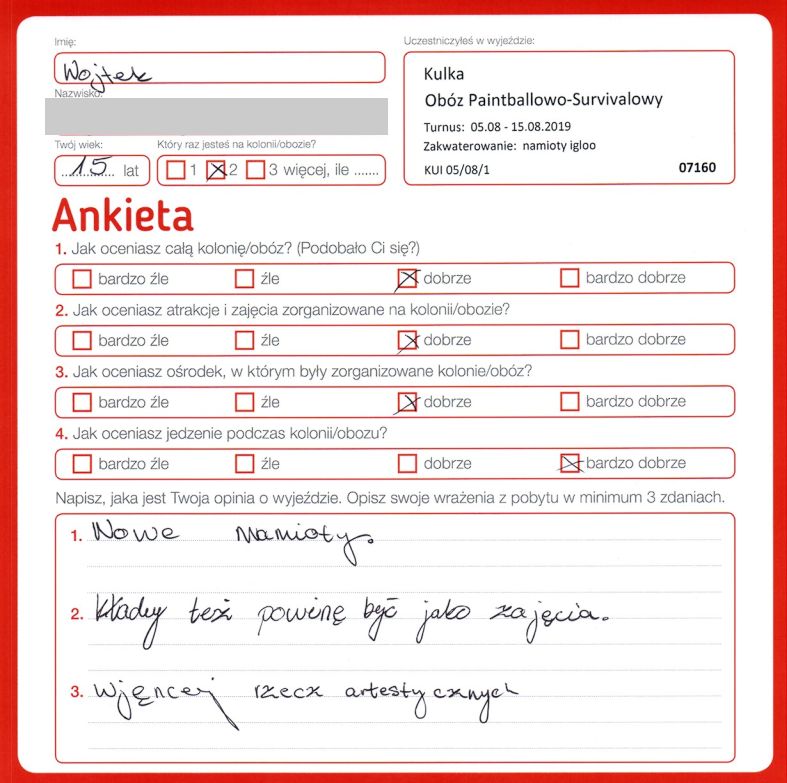 Imię:
Wojtek
Nazwisko:
Twój wiek:
15 lat
Który raz jesteś na kolonii/obozie?
1 2 3 więcej, ile .......
Uczestniczyłeś w wyjeździe:
Kulka
Obóz Paintballowo-Survivalowy
Turnus: 05.08 - 15.08.2019
Zakwaterowanie: namioty igloo
KUI 05/08/1 07160
Ankieta
1. Jak oceniasz całą kolonię/obóz? (Podobało Ci się?)
bardzo źle źle dobrze bardzo dobrze
2. Jak oceniasz atrakcje i zajęcia zorganizowane na kolonii/obozie?
bardzo źle źle dobrze bardzo dobrze
3. Jak oceniasz ośrodek, w którym były zorganizowane kolonie/obóz?
bardzo źle źle dobrze bardzo dobrze
4. Jak oceniasz jedzenie podczas kolonii/obozu?
bardzo źle źle dobrze bardzo dobrze
Napisz, jaka jest Twoja opinia o wyjeździe. Opisz swoje wrażenia z pobytu w minimum 3 zdaniach.
1. Nowe namioty.
2. Kłady też powinę być jako zajęcia.
3. Wjęncej rzecz artestycznych